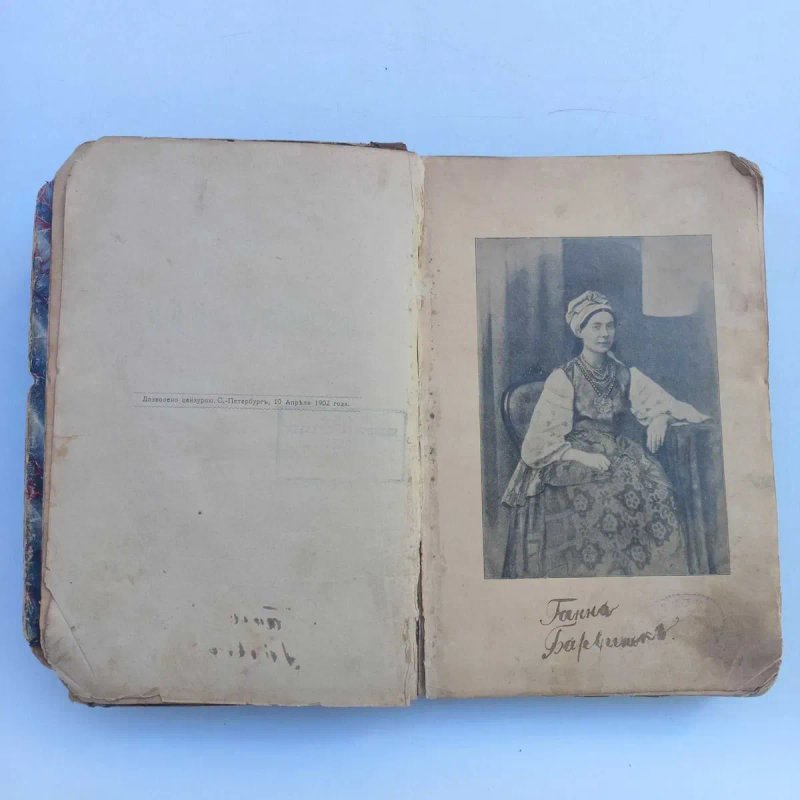 Дозволено цензурою. С.-Петербургъ, 10 Апрѣля 1902 года.
Ганна
Барвинокъ.